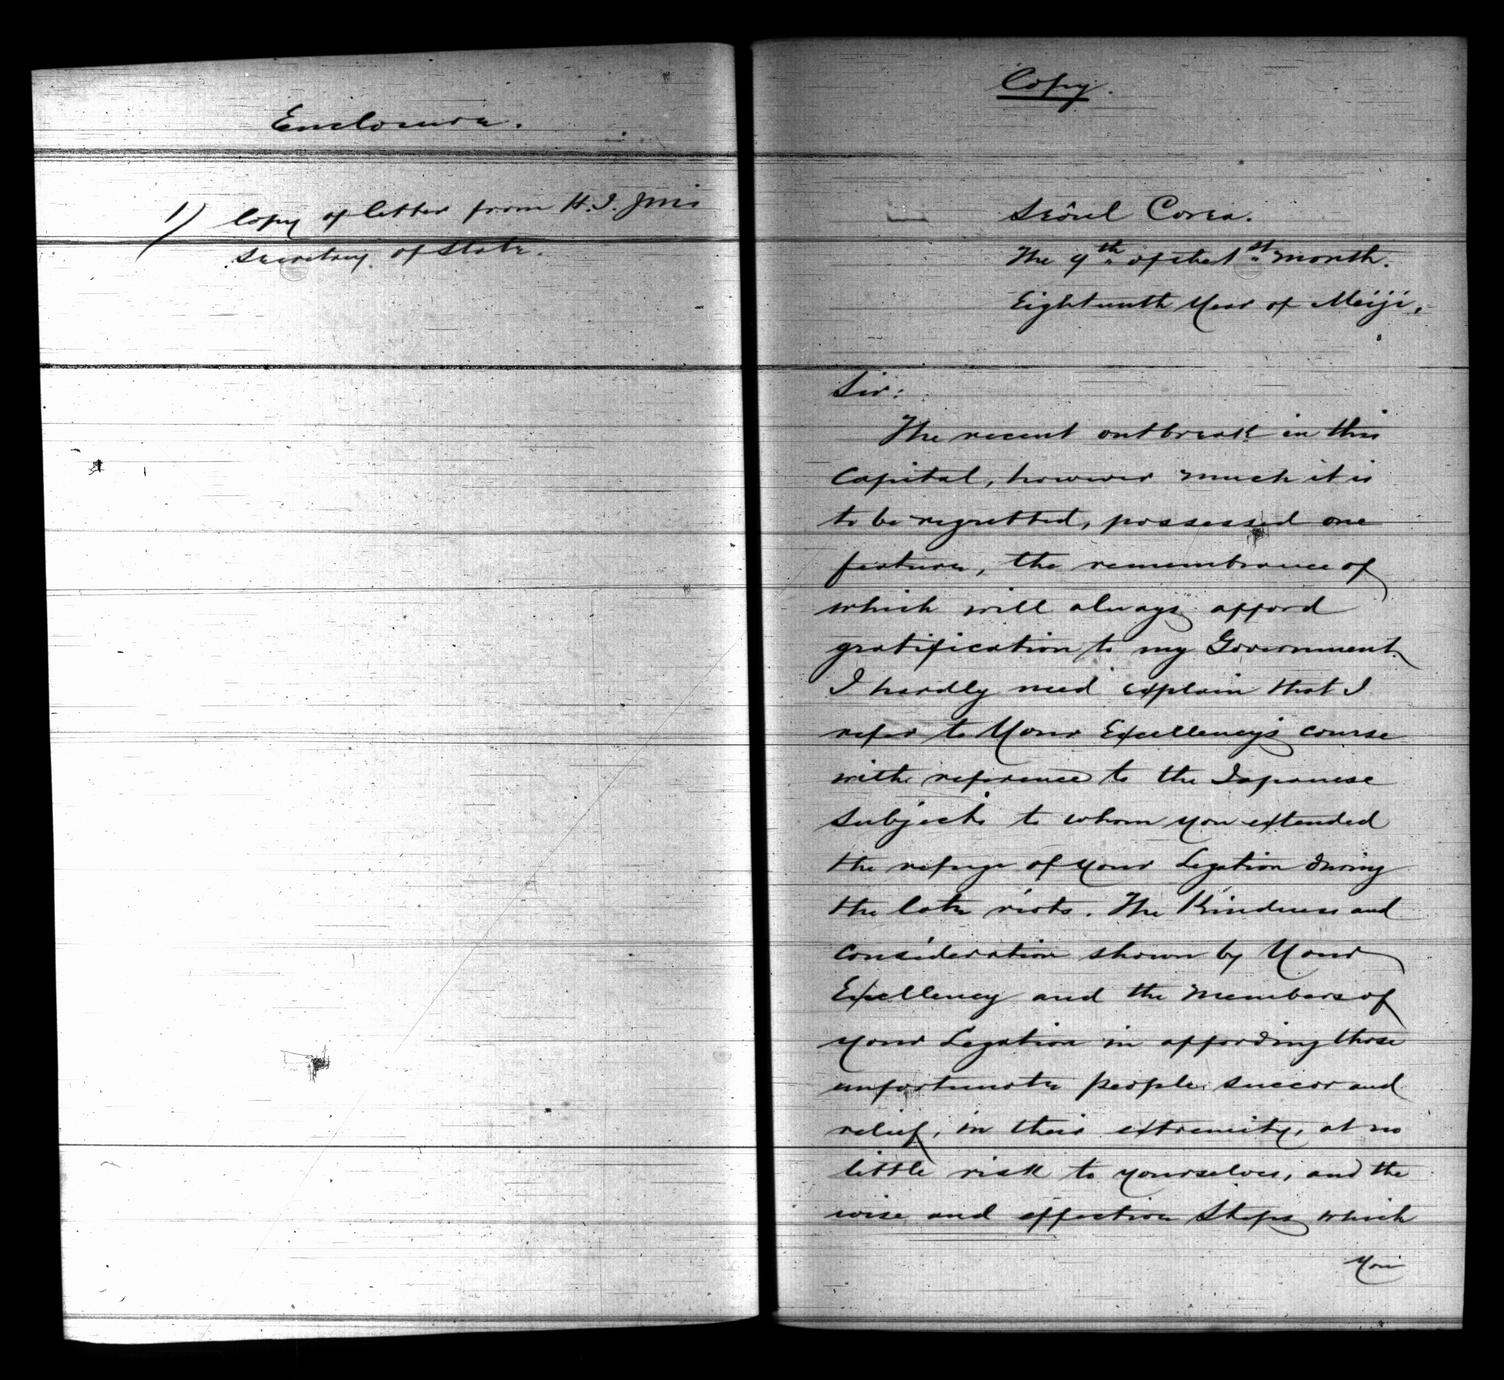 Enclosure.
1) Copy of letter from H.I.Jm's
Secretary of State.
Copy.
Seôul Corea.
The 9th of the 1st month.
Eighteenth Year of Meiji.
Sir:
The recent outbreak in this
Capital, however much it is
to be regretted, possessed one
feature, the remembrance of
which will always afford
gratification to my Government.
I hardly need explain that I
refer to Your Excellency's course
with reference to the Japanese
subjects to whom you extended
the refuge of your Legation during
the late riots. The Kindness and
consideration shown by Your
Excellency and the Members of
your Legation in affording those
unfortunate people succor and
relief, in their extremity, at no
little risk to yourselves, and the
wise and effective Steps which
You